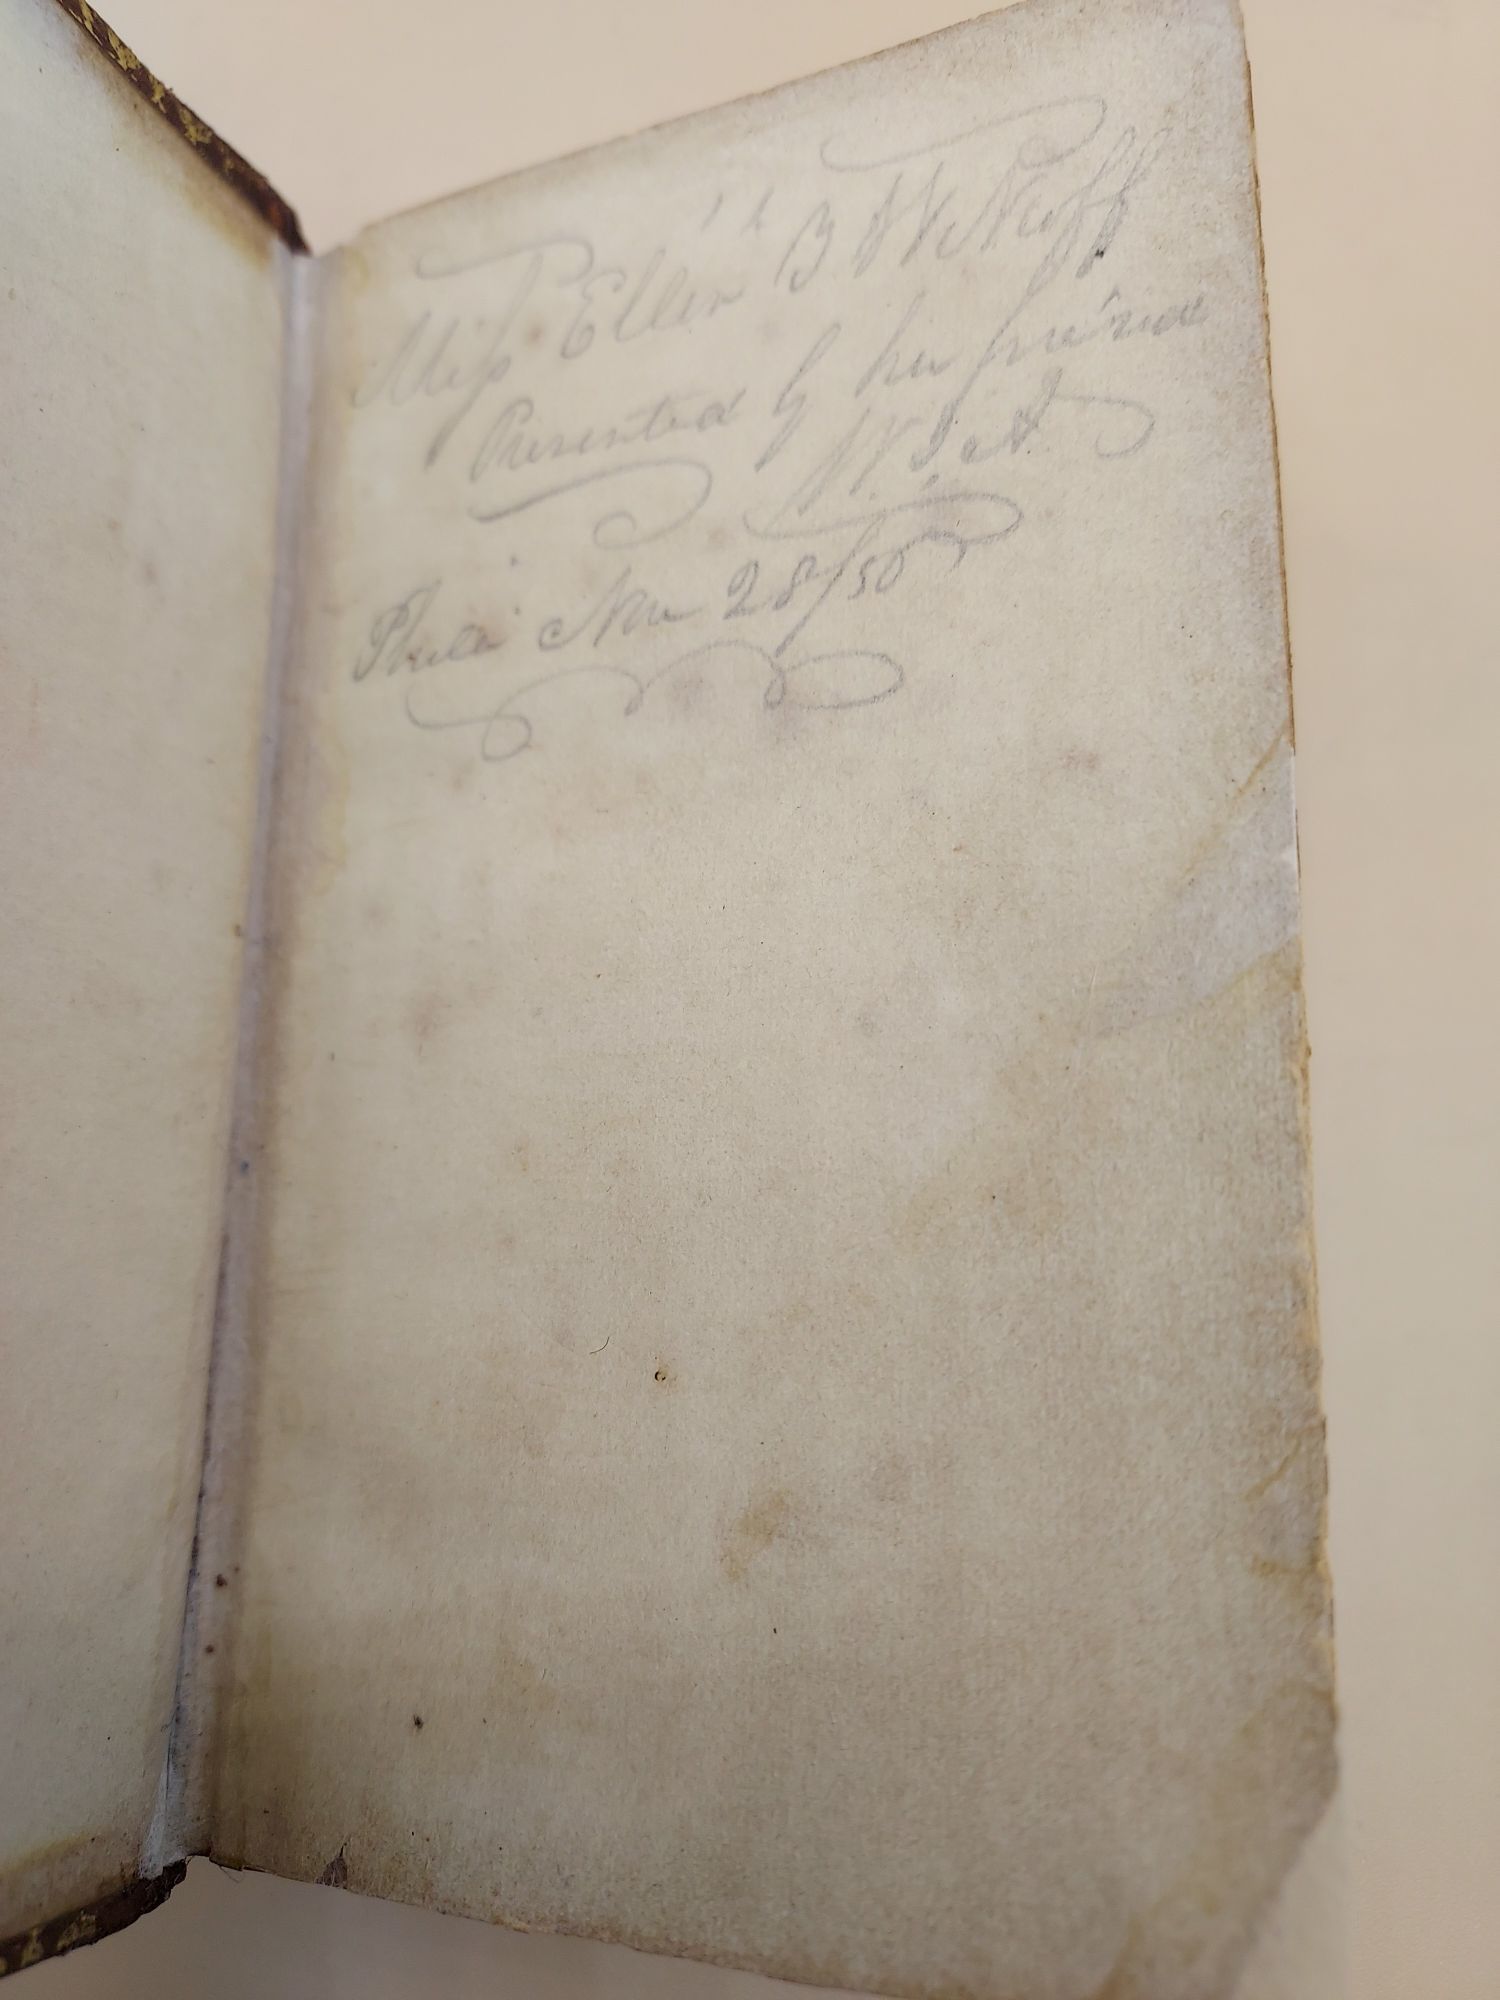 Miss Ellen B W Neff
Presented by her friend
W. J. A.
Phila Nov 28/50